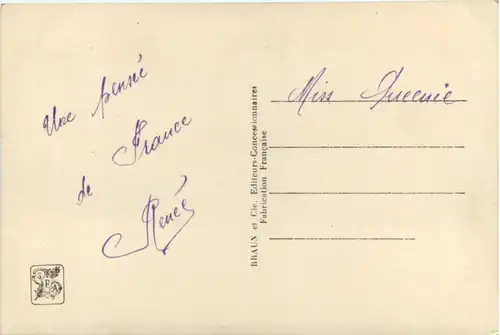 Une pensé
de France
Renée
BRAUN et Cie, Editeurs-Concessionnaires
Fabrication Française
Miss Queenie